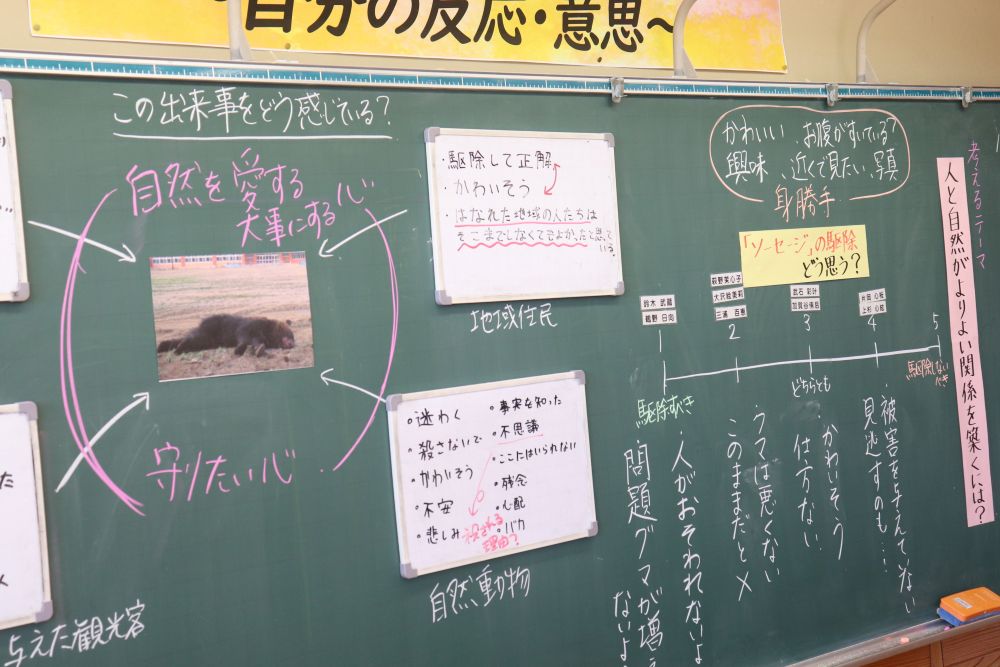 自分の反応・意思～
この出来事をどう感じている？
自然を愛する
大事にする心
守りたい心
与えた観光客
・駆除して正解
・かわいそう
・はなれた地域の人たちは
そこまでしなくてもよかったと思って
いる。
地域住民
・迷わく
・殺さないで
・かわいそう
・不安
・悲しみ
・事実を知った
・不思議
・ここにはいられない
・残念
・心配
・バカ
殺される
理由？
自然動物
かわいい お腹がすいている？
興味、近くで見たい、写真
身勝手
「ソーセージ」の駆除
どう思う？
鈴木 武蔵
鶴野 日向
萩野 美心子
大沢 絵美莉
三浦 百恵
武石 彩叶
加賀谷 侑昌
上杉 心結
1
2
3
4
5
駆除すべき
どちらとも
駆除しない
べき
・人がおそわれないよ
問題グマが増え
ないよ
ウマは悪くない
このままだと×
かわいそう
仕方ない
・被害を与えてない
見逃すのも…
考えるテーマ
人と自然がよりよい関係を築くには？